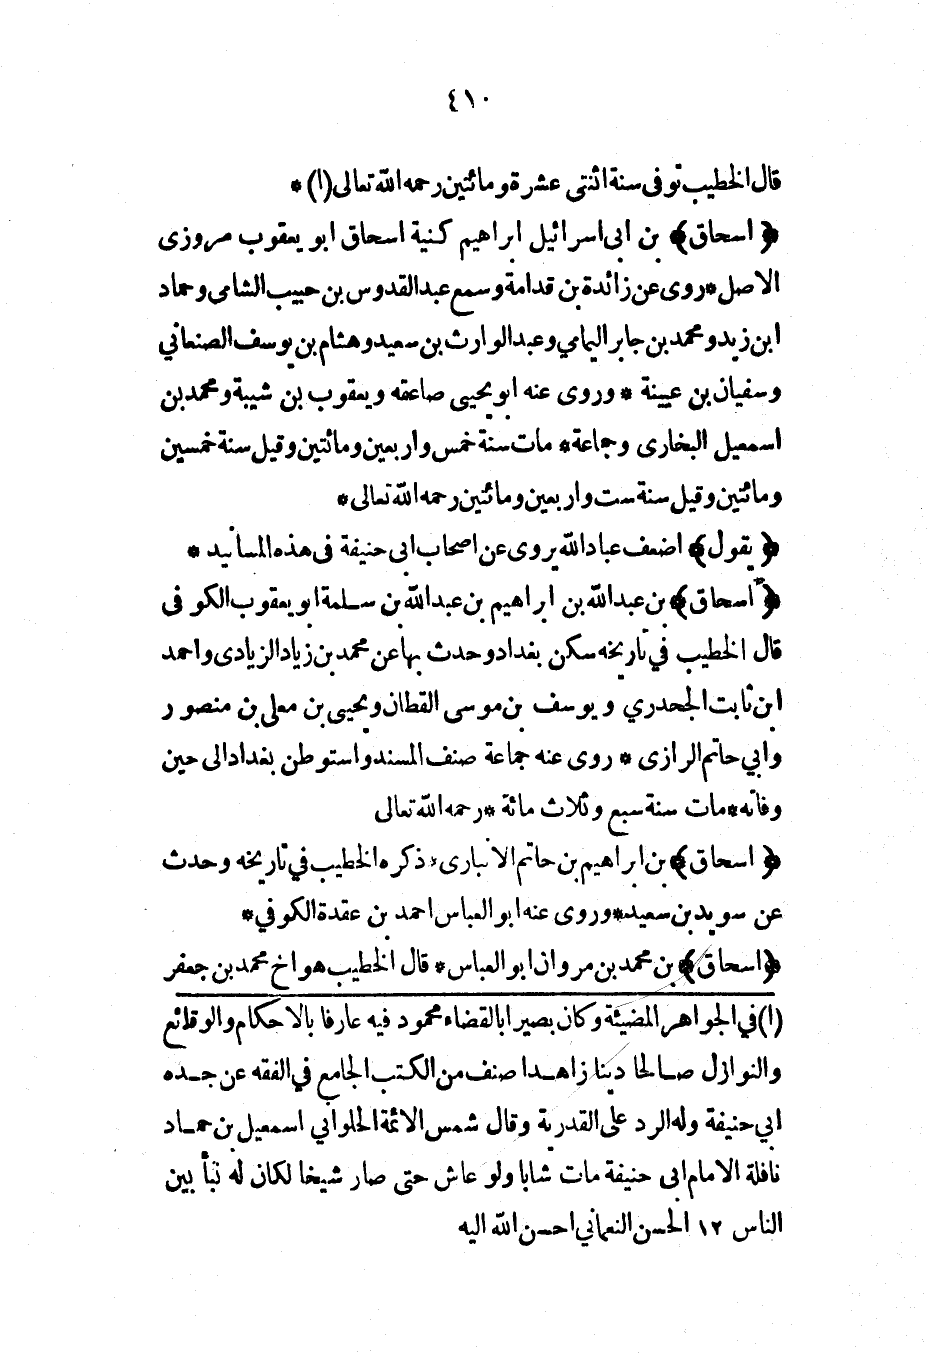 ٤١٠
قال الخطيب توفى سنة اثنتى عشرة ومائتين رحمه الله تعالى (١) *
﴿ اسحاق ﴾ بن ابى اسرائيل ابراهيم كنية اسحاق ابو يعقوب مروزى
الاصل * روى عن زائدة بن قدامة وسمع عبد القدوس بن حبيب الشامى وحماد
ابن زيد ومحمد بن جابر اليمامي وعبد الوارث بن سعيد وهشام بن يوسف الصنعاني
وسفيان بن عيينة * وروى عنه ابو يحيى صاعقه ويعقوب بن شيبة ومحمد بن
اسمعيل البخارى وجماعة * مات سنة خمس واربعين ومائتين وقيل سنة خمسين
ومائتين وقيل سنة ست واربعين ومائتين رحمه الله تعالى *
﴿ يقول ﴾ اضعف عباد الله يروى عن اصحاب ابى حنيفة فى هذه المسانيد *
﴿ اسحاق ﴾ بن عبد الله بن ابراهيم بن عبد الله بن سلمة ابو يعقوب الكوفى
قال الخطيب في تاريخه سكن بغداد وحدث بها عن محمد بن زياد الزيادى واحمد
ابن ثابت الجحدري ويوسف بن موسى القطان ويحيى بن معلى بن منصور
وابي حاتم الرازى * روى عنه جماعة صنف المسند واستوطن بغداد الى حين
وفاته * مات سنة سبع وثلاث مائة * رحمه الله تعالى
﴿ اسحاق ﴾ بن ابراهيم بن حاتم الانبارى * ذكره الخطيب في تاريخه وحدث
عن سويد بن سعيد * وروى عنه ابو العباس احمد بن عقدة الكوفي *
﴿ اسحاق ﴾ بن محمد بن مروان ابو العباس * قال الخطيب هو اخ محمد بن جعفر
(١) في الجواهر المضيئة وكان بصيرا بالقضاء محمود فيه عارفا بالاحكام والوقائع
والنوازل صالحا دينا زاهدا صنف من الكتب الجامع في الفقه عن جده
ابي حنيفة وله الرد على القدرية وقال شمس الائمة الحلواني اسمعيل بن حماد
نافلة الامام ابى حنيفة مات شابا ولو عاش حتى صار شيخا لكان له نبأ بين
الناس ١٢ الحسن النعماني احسن الله اليه